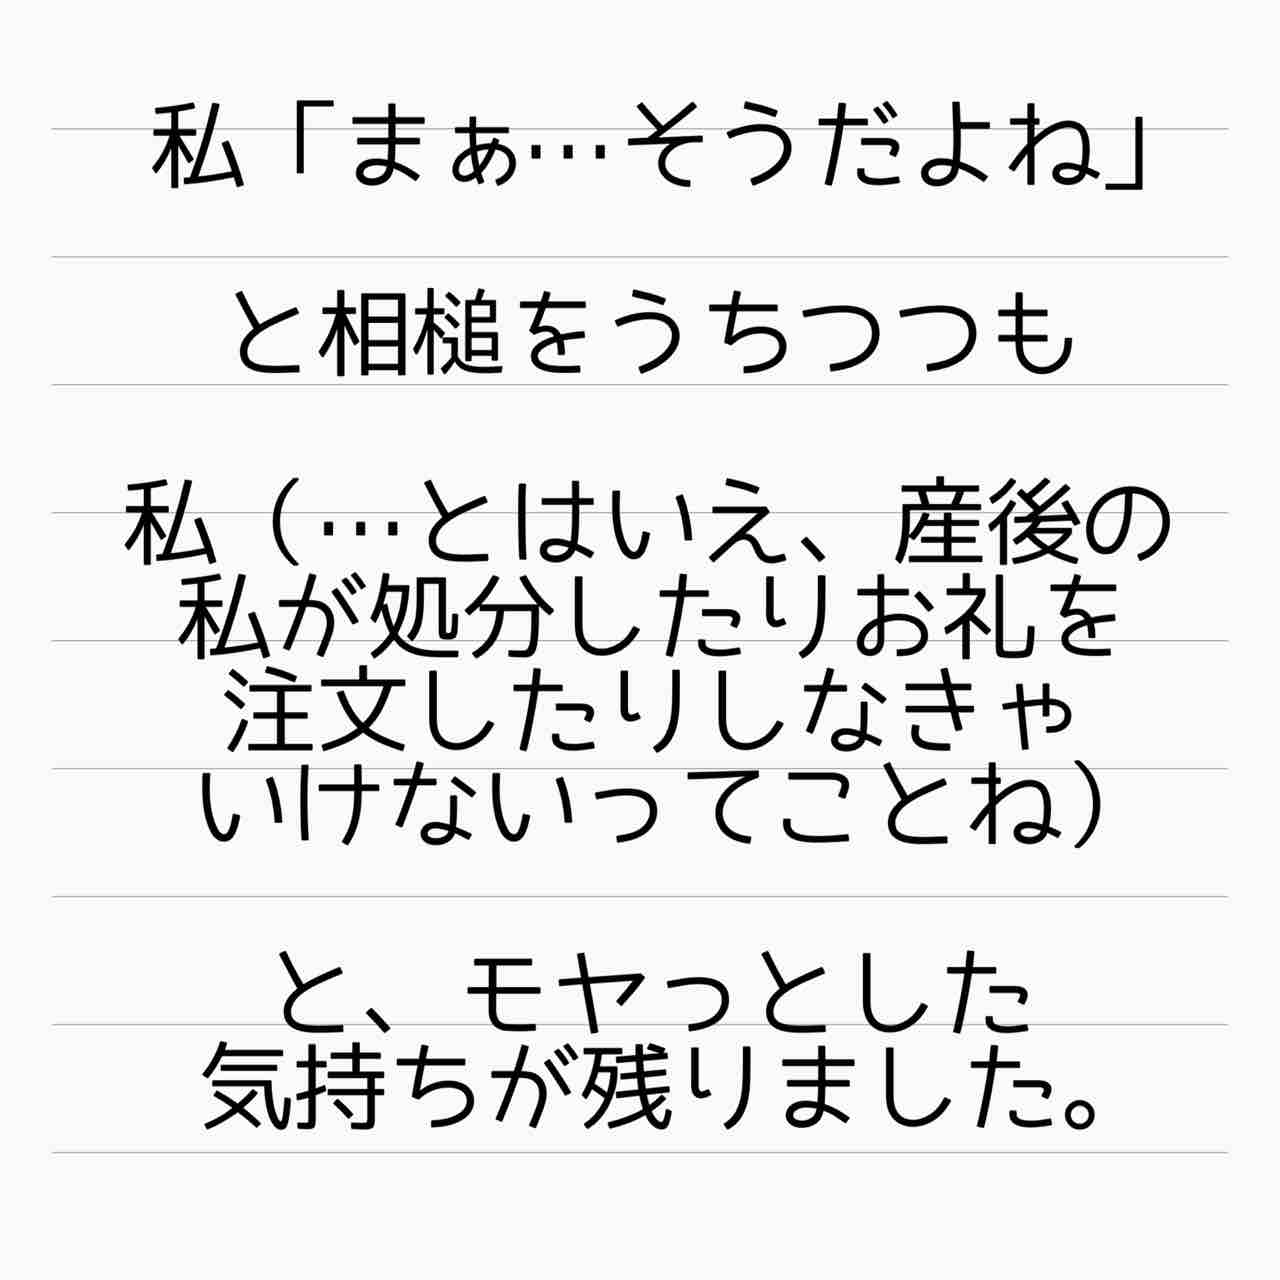 私「まぁ…そうだよね」
と相槌をうちつつも
私（…とはいえ、産後の
私が処分したりお礼を
注文したりしなきゃ
いけないってことね）
と、モヤっとした
気持ちが残りました。